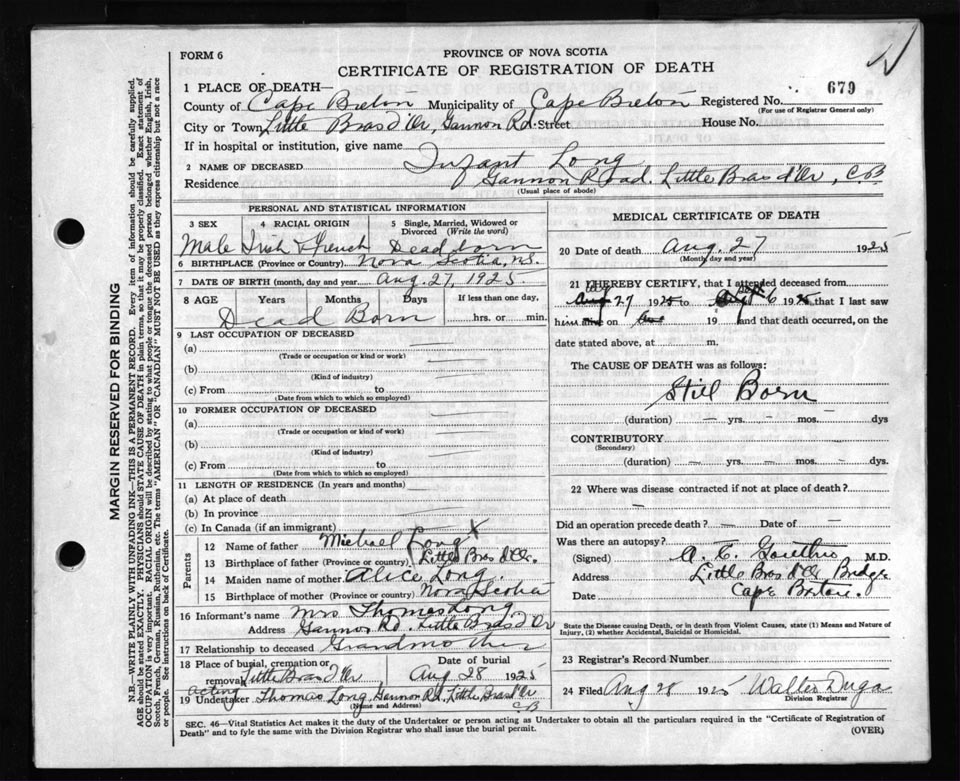 FORM 6
PROVINCE OF NOVA SCOTIA
CERTIFICATE OF REGISTRATION OF DEATH
1 PLACE OF DEATH—
679
County of Cape Breton Municipality of Cape Breton Registered No.
(For use of Registrar General only)
City or Town Little Bras d'Or, Gannon Rd. Street House No.
If in hospital or institution, give name
2 NAME OF DECEASED Infant Long
Residence Gannon Road. Little Bras d'Or, C.B
(Usual place of abode)
PERSONAL AND STATISTICAL INFORMATION
3 SEX 4 RACIAL ORIGIN 5 Single, Married, Widowed or Divorced (Write the word)
Male Irish & French Deadborn
6 BIRTHPLACE (Province or Country) Nova Scotia, N.S.
7 DATE OF BIRTH (month, day and year Aug. 27, 1925
8 AGE Years Months Days If less than one day,
Dead Born hrs. or min.
9 LAST OCCUPATION OF DECEASED
(a)
(Trade or occupation or kind or work)
(b)
(Kind of industry)
(c) From to
(Date from which to which so employed)
10 FORMER OCCUPATION OF DECEASED
(a)
(Trade or occupation or kind of work)
(b)
(Kind of industry)
(c) From to
(Date from which to which so employed)
11 LENGTH OF RESIDENCE (In years and months)
(a) At place of death
(b) In province
(c) In Canada (if an immigrant)
Parents
12 Name of father Michael Long X
13 Birthplace of father (Province or country) Little Bras d'Or.
14 Maiden name of mother Alice Long.
15 Birthplace of mother (Province or country) Nova Scotia
16 Informant's name Mrs Thomas Long
Address Gannon Rd. Little Bras d'Or
17 Relationship to deceased Grandmother
18 Place of burial, cremation or removal Little Bras D'Or Date of burial Aug 28 1925
acting
19 Undertaker Thomas Long, Gannon Rd. Little Bras d'Or
(Name and Address) C B
MEDICAL CERTIFICATE OF DEATH
20 Date of death Aug. 27 1925
(Month, day and year)
21 I HEREBY CERTIFY, that I attended deceased from
Aug 27 1925 to 6 1925 that I last saw
him alive on 19 and that death occurred, on the
date stated above, at m.
The CAUSE OF DEATH was as follows:
Still Born
(duration) — yrs. — mos. — dys
CONTRIBUTORY
(Secondary)
(duration) — yrs. — mos. — dys.
22 Where was disease contracted if not at place of death?
Did an operation precede death? — Date of —
Was there an autopsy?
(Signed) M.D.
Address Little Bras d'Or Bridge
Date Cape Breton.
State the Disease causing Death, or in death from Violent Causes, state (1) Means and Nature of Injury, (2) whether Accidental, Suicidal or Homicidal.
23 Registrar's Record Number
24 Filed Aug 28 1925 Walter
Division Registrar
SEC. 46—Vital Statistics Act makes it the duty of the Undertaker or person acting as Undertaker to obtain all the particulars required in the "Certificate of Registration of
Death" and to fyle the same with the Division Registrar who shall issue the burial permit.
(OVER)
MARGIN RESERVED FOR BINDING
N.B.—WRITE PLAINLY WITH UNFADING INK—THIS IS A PERMANENT RECORD. Every item of information should be carefully supplied.
AGE should be stated EXACTLY. PHYSICIANS should STATE CAUSE OF DEATH in plain terms, so that it may be properly classified. Exact statement of
OCCUPATION is very important. RACIAL ORIGIN will be described by stating to what people or tongue the deceased person belonged whether English, Irish,
Scotch, French, German, Russian, Ruthenian, etc. The terms "AMERICAN" OR "CANADIAN" MUST NOT BE USED as they express citizenship but not a race
or people. See instructions on back of Certificate.